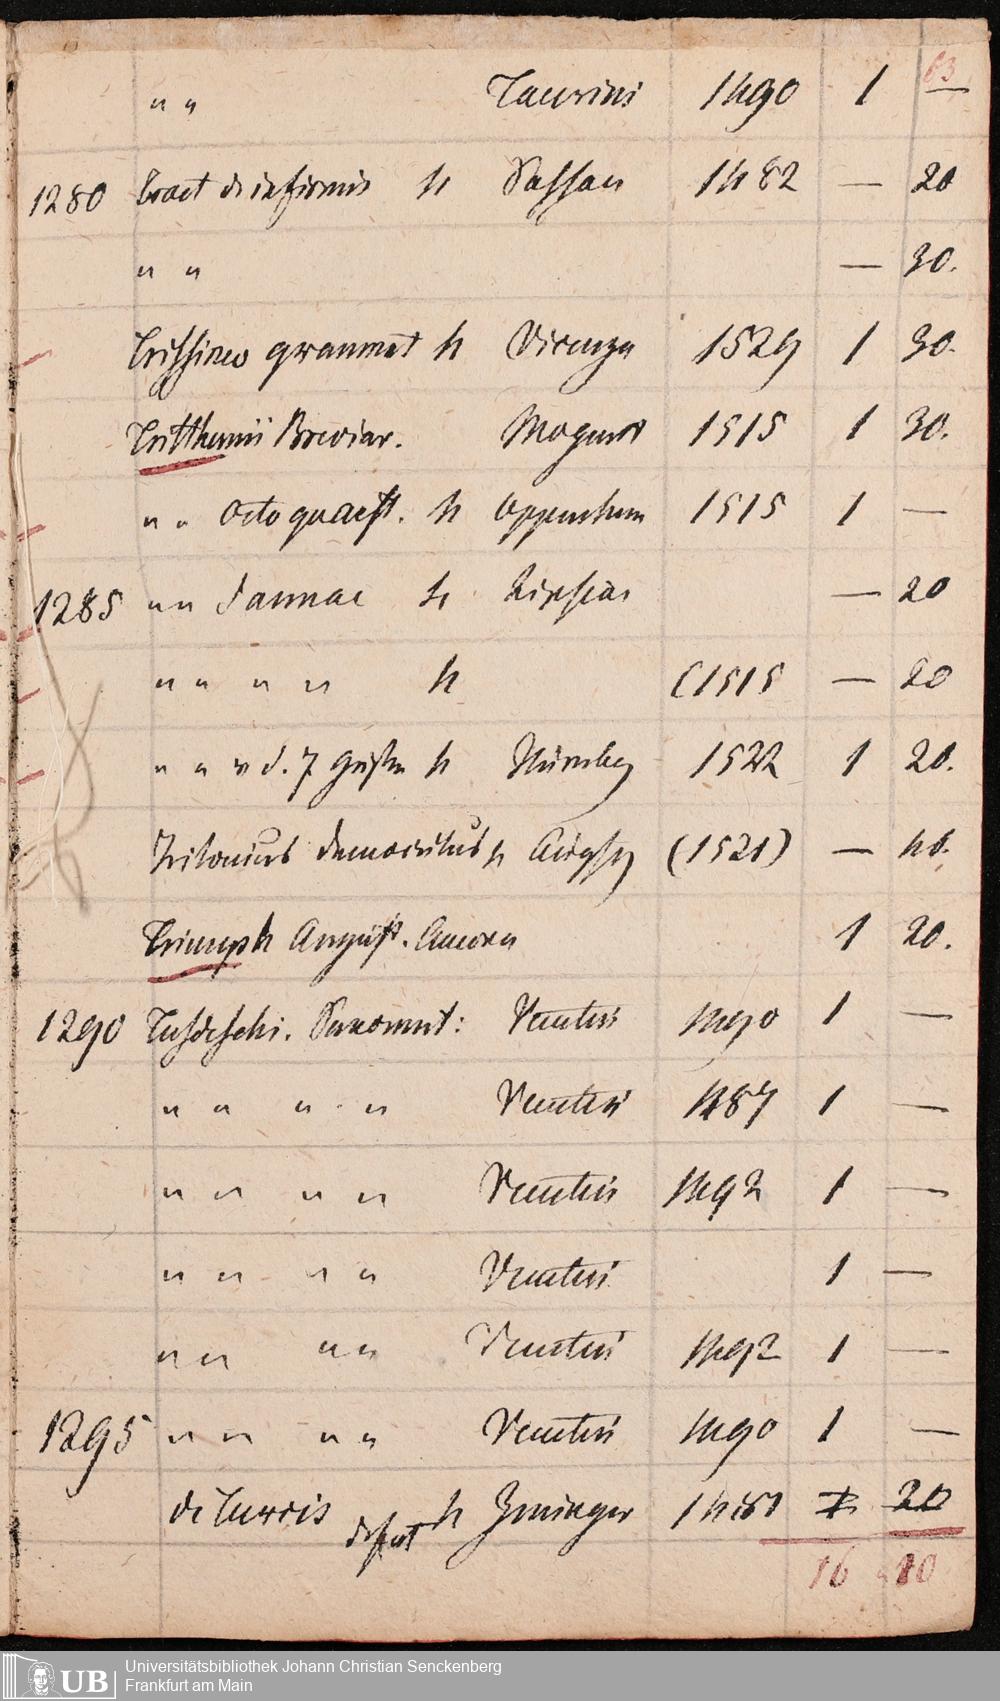 63
" " Taurini 1490 1 —
1280 Tract de infirmis 4 Passau 1482 — 20
" " — 30.
Trissino grammat 4 Vicenza 1529 1 30.
Tritthemii Breviar. Mogunt 1515 1 30.
" " Octo quaest. 4 Oppenheim 1515 1 —
1285 " " 4 Lipsiae — 20
" " " " 4 (1515 — 20
" " v d. 7 Geistern 4 Nürnberg 1522 1 20.
Tritonius Democritus 4 Augsbg (1521) — 40.
Triumph August. Ancona 1 20.
1290 Tudeschi. Venetiis 1490 1 —
" " " " Venetiis 1487 1 —
" " " " Venetiis 1492 1 —
" " " " Venetiis 1 —
" " " " Venetiis 1492 1 —
1295 " " " " Venetiis 1490 1 —
de Turris defect 4 Zeninger 1481 20
16 " 10
UB Universitätsbibliothek Johann Christian Senckenberg
Frankfurt am Main